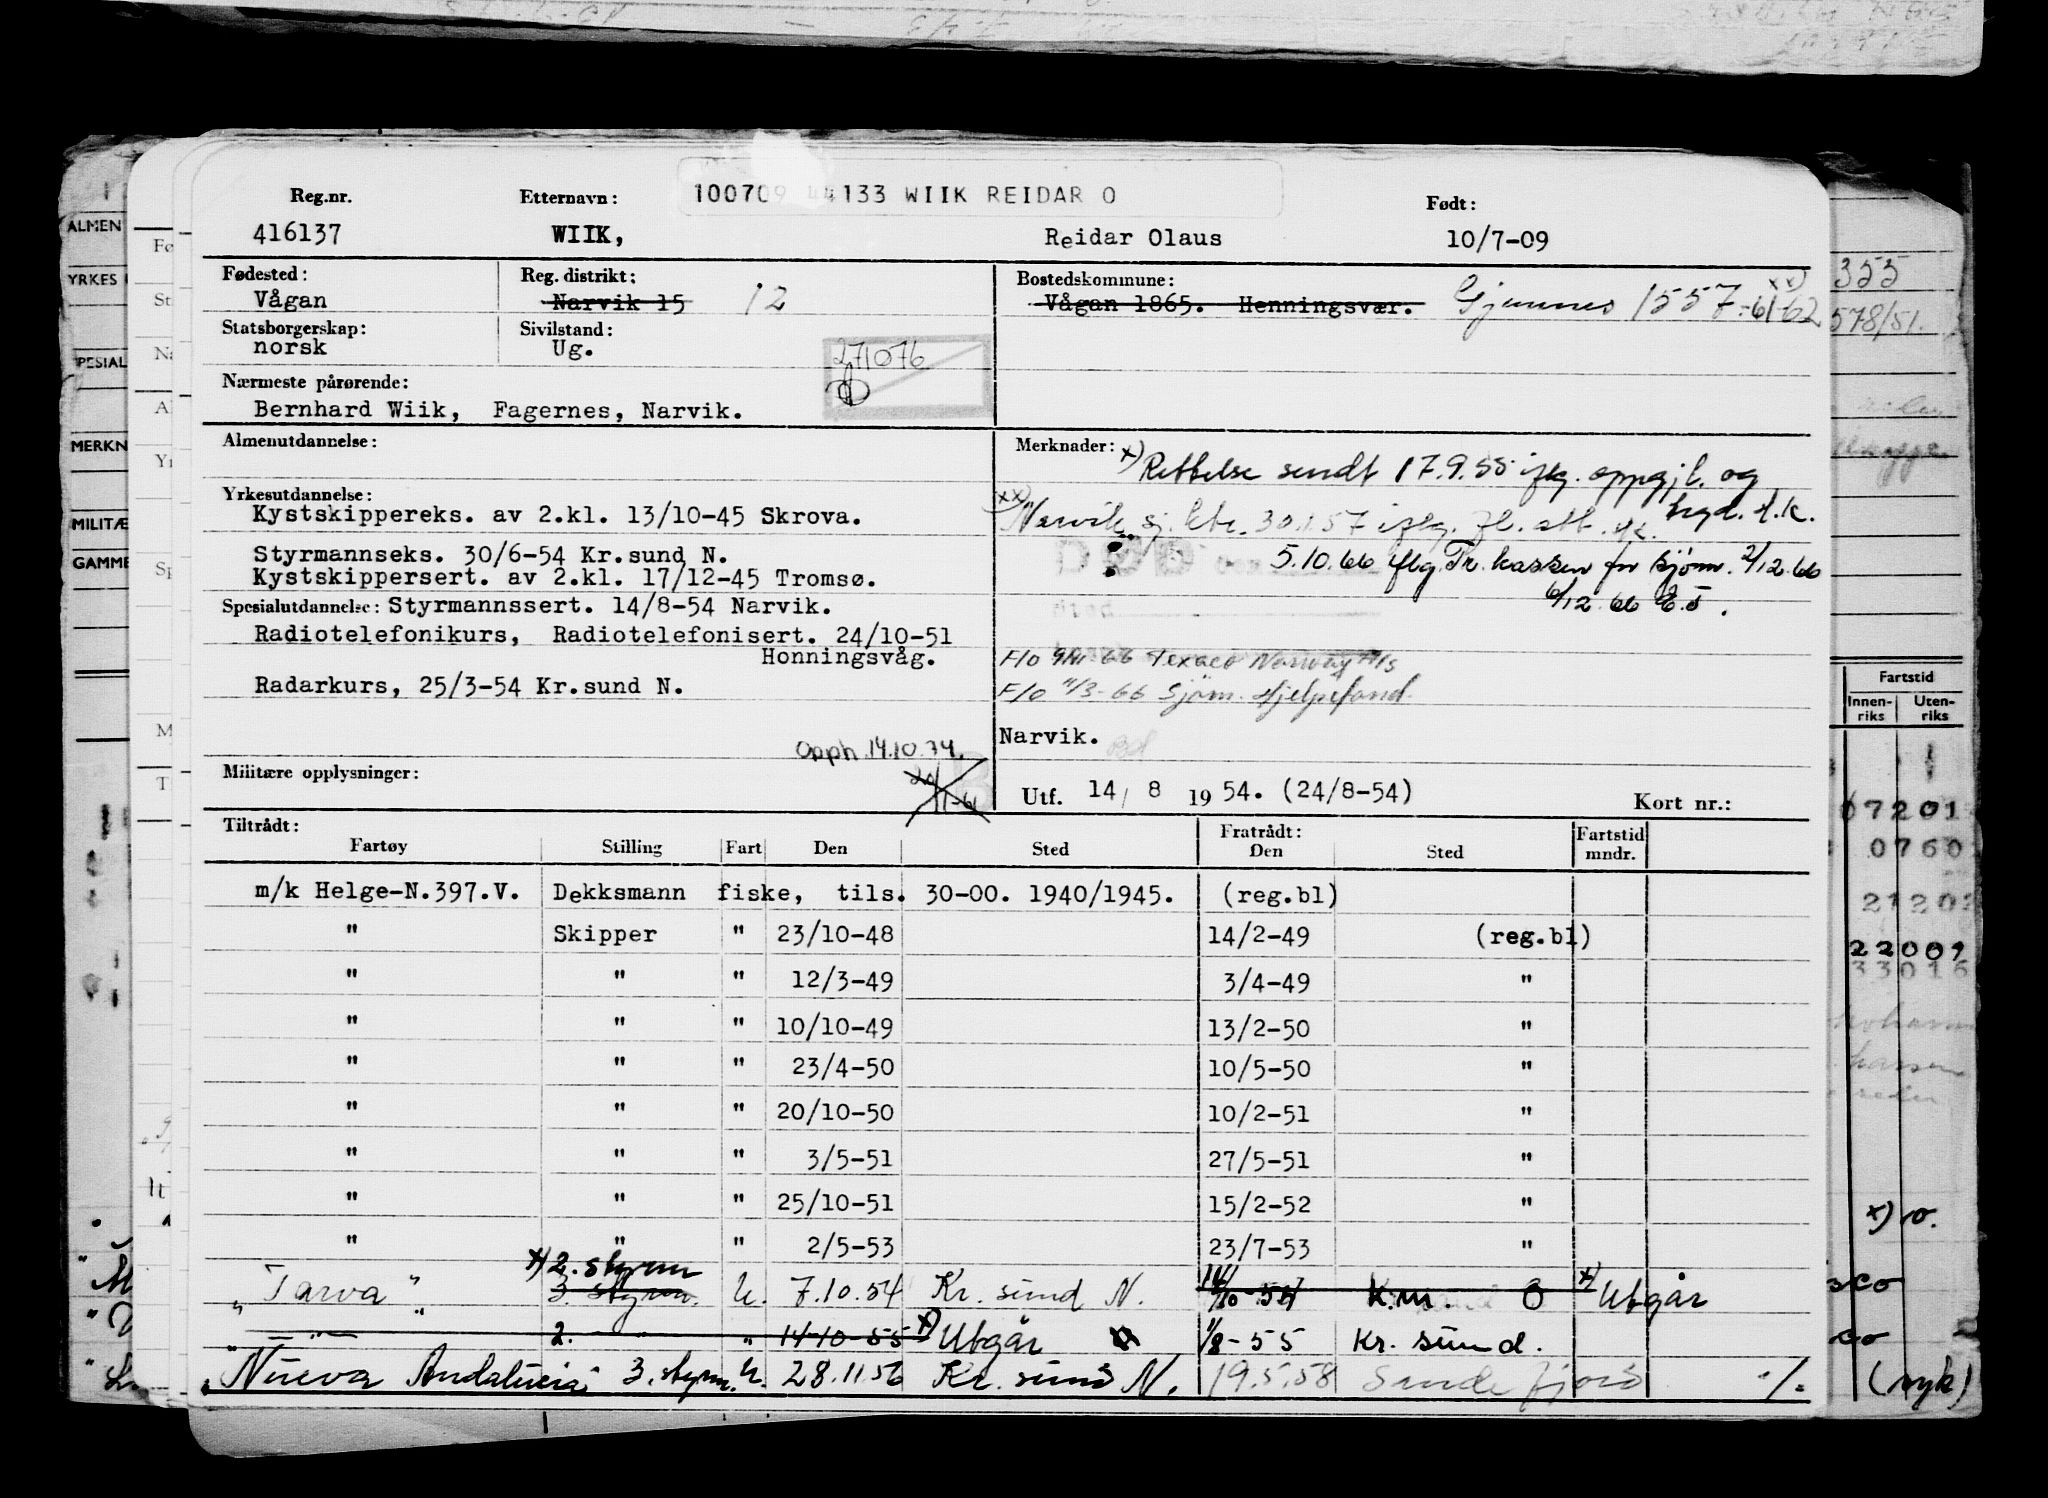 Reg.nr. Etternavn: 100709 44133 WIIK REIDAR O Født:
416137 WIIK, Reidar Olaus 10/7-09
Fødested: Reg. distrikt: Bostedskommune:
Vågan Narvik 15 12 Vågan 1865. Henningsvær. Gjemnes 1557 - 61-62 xx)
Statsborgerskap: Sivilstand:
norsk Ug.
271076
Nærmeste pårørende:
Bernhard Wiik, Fagernes, Narvik.
Almenutdannelse: Merknader:
x) Rettelse sendt 17.9.55 iflg. oppgjl. og
Yrkesutdannelse:
Kystskippereks. av 2.kl. 13/10-45 Skrova.
xx) Narvik sj. ktr. 30.1.57 iflg. fl. att.
Styrmannseks. 30/6-54 Kr.sund N.
5.10.66 iflg. Tr. kassen for sjøm. 2/12.66
Kystskippersert. av 2.kl. 17/12-45 Tromsø.
6/12.66
Spesialutdannelse: Styrmannssert. 14/8-54 Narvik.
Radiotelefonikurs, Radiotelefonisert. 24/10-51
Honningsvåg.
F/o 9/11-66 Texaco Norway A/s
Radarkurs, 25/3-54 Kr.sund N.
F/o 11/3-66 Sjøm. Hjelpefond
Narvik.
Opph. 14.10.74.
Militære opplysninger:
Utf. 14/ 8 19 54. (24/8-54) Kort nr.:
Tiltrådt: Fratrådt: Fartstid
Fartøy Stilling Fart Den Sted Den Sted mndr.
m/k Helge-N.397.V. Dekksmann fiske, tils. 30-00. 1940/1945. (reg.bl)
" Skipper " 23/10-48 14/2-49 (reg.bl)
" " " 12/3-49 3/4-49 "
" " " 10/10-49 13/2-50 "
" " " 23/4-50 10/5-50 "
" " " 20/10-50 10/2-51 "
" " " 3/5-51 27/5-51 "
" " " 25/10-51 15/2-52 "
" " " 2/5-53 23/7-53 "
x) 2. styrm
"Tarva" 3. styrm. U. 7.10.54 Kr. sund N. K.m. x) Utgår
" 2. " " 14-10-55 x) Utgår 1/8-55 Kr. sund.
"Nueva Andalucia" 3. styrm. U. 28.11.56 Kr. sund N. 19.5.58 Sandefjord ./.
ALMEN
YRKES
SPESIAL
MERKN
MILITÆ
GAMME
355
578/51.
Fartstid
Innen-riks Uten-riks
07201
0760
22009
33016
x) 0.
(nyk)